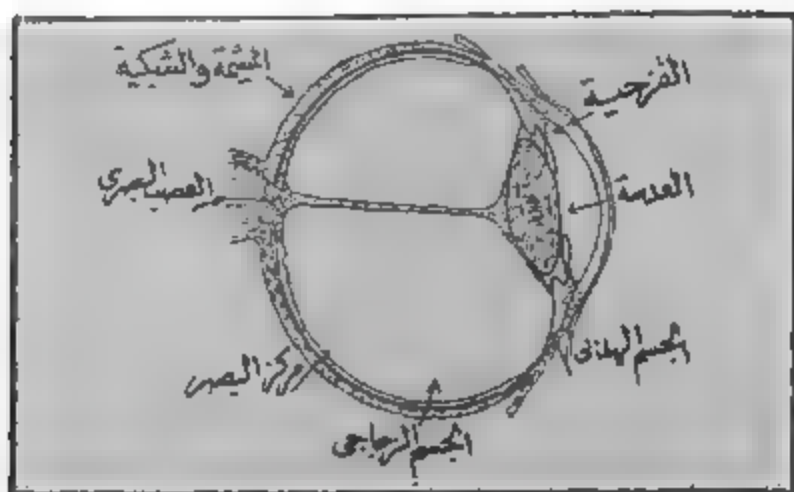 المشيمة والشبكية
القزحية
العصب البصري
العدسة
الجسم الهدبي
مركز البصر
الجسم الزجاجي